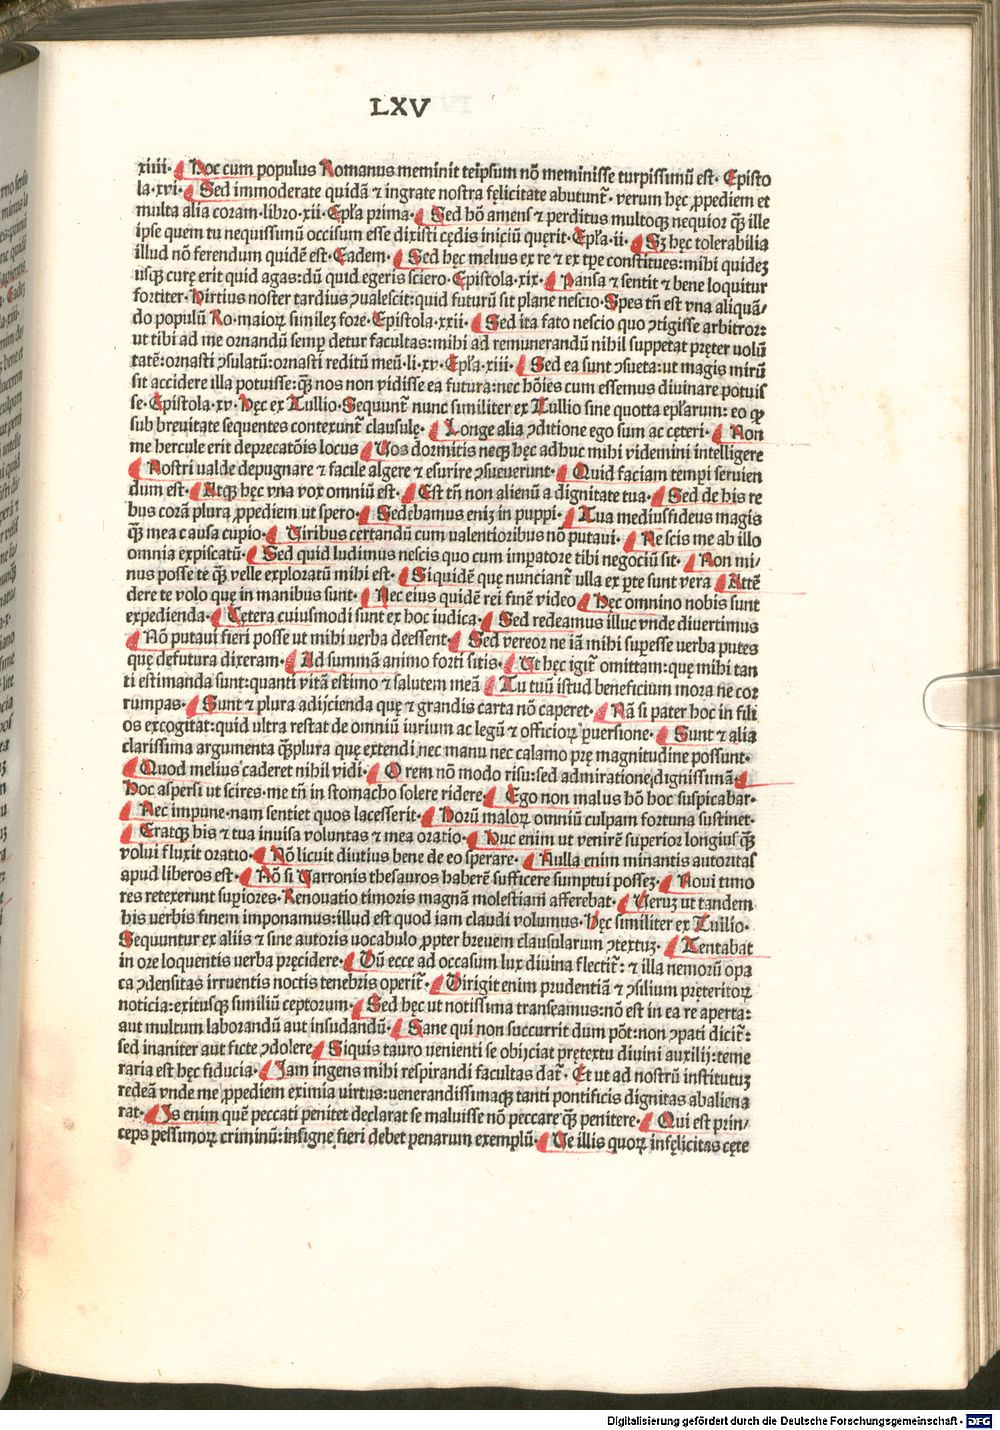 LXV
xiiii· Hoc cum populus Romanus meminit teip̄sum nō meminisse turpissimū est· Episto
la·xvi· Sed immoderate quidā ⁊ ingrate nostra fęlicitate abutunt̄· verum hęc ꝓpediem et
multa alia coram·libro·xii·Ep̄la prima· Sed hō amens ⁊ perditus multoqꝫ nequior q̄ꝫ ille
ipse quem tu nequissimū occisum esse dixisti cędis iniciū quęrit·Ep̄la·ii· Sꝫ hęc tolerabilia
illud nō ferendum quidē est·Eadem· Sed hęc melius ex re ⁊ ex tp̄e constitues:mihi quideꝫ
usqꝫ curę erit quid agas:dū quid egeris sciero·Epistola·xix· Pansa ⁊ sentit ⁊ bene loquitur
fortiter·Hirtius noster tardius ꝯualescit:quid futurū sit plane nescio·Spes tn̄ est vna aliquā/
do populū Ro·maioꝝ simileꝫ fore·Epistola·xxii· Sed ita fato nescio quo ꝯtigisse arbitror:
ut tibi ad me ornandū semꝑ detur facultas:mihi ad remunerandū nihil suppetat pręter uolū
tatē:ornasti ꝯsulatū:ornasti reditū meū·li·xv·Ep̄la·xiii· Sed ea sunt ꝯsueta:ut magis mirū
sit accidere illa potuisse:q̄ꝫ nos non vidisse ea futura:nec hōies cum essemus diuinare potuis
se·Epistola·xv·Hęc ex Tullio·Sequunt̄ nunc similiter ex Tullio sine quotta ep̄larum: eo ꝙ
sub breuitate sequentes contexunt̄ clausulę· Longe alia ꝯditione ego sum ac cęteri· Non
me hercule erit deprecatōis locus Uos dormitis necqꝫ hęc adhuc mihi videmini intelligere
Nostri ualde depugnare ⁊ facile algere ⁊ esurire ꝯsueuerunt· Quid faciam temp̄i seruien
dum est· Atqꝫ hęc vna vox omniū est· Est tn̄ non alienū a dignitate tua· Sed de his re
bus corā plura ꝓpediem ut spero· Sedebamus eniꝫ in puppi· Tua mediusfideus magis
q̄ꝫ mea causa cupio· Uiribus certandū cum ualentioribus nō putaui· Ne scis me ab illo
omnia expiscatū· Sed quid ludimus nescis quo cum imꝑatore tibi negociū sit· Non mi/
nus posse te q̄ꝫ velle exploratū mihi est· Siquidē quę nunciant̄ ulla ex ꝑte sunt vera Attē
dere te volo quę in manibus sunt· Nec eius quidē rei finē video Hęc omnino nobis sunt
expedienda· Cętera cuiusmodi sunt ex hoc iudica· Sed redeamus illuc vnde diuertimus
Nō putaui fieri posse ut mihi uerba deessent· Sed vereor ne iā mihi suꝑesse uerba putes
quę defutura dixeram· Ad summā animo forti sitis· Ut hęc igit̄ omittam:quę mihi tan
ti estimanda sunt:quanti vitā estimo ⁊ salutem meā Tu tuū istud beneficium mora ne cor
rumpas· Sunt ⁊ plura adijcienda quę ⁊ grandis carta nō caperet· Nā si pater hoc in fili
os excogitat:quid ultra restat de omniū iurium ac legū ⁊ officioꝝ ꝑuersione· Sunt ⁊ alia
clarissima argumenta q̄ꝫplura quę extendi nec manu nec calamo pre magnitudine possunt·
Quod melius caderet nihil vidi· O rem nō modo risu:sed admiratione dignissimā
Hoc aspersi ut scires·me tn̄ in stomacho solere ridere Ego non malus hō hoc suspicabar·
Nec impune·nam sentiet quos lacesserit· Horū maloꝝ omniū culpam fortuna sustinet·
Eratqꝫ his ⁊ tua inuisa voluntas ⁊ mea oratio· Huc enim ut venirē superior longius q̄ꝫ
volui fluxit oratio· Nō licuit diutius bene de eo sperare· Nulla enim minantis autoritas
apud liberos est· Nō si Uarronis thesauros haberē sufficere sumptui posseꝫ· Noui timo
res retexerunt suꝑiores·Renouatio timoris magnā molestiam afferebat· Ueruꝫ ut tandem
his uerbis finem imponamus:illud est quod iam claudi volumus·Hęc similiter ex Tullio·
Sequuntur ex aliis ⁊ sine autoris uocabulo ꝓpter breuem clausularum ꝯtextuꝫ· Tentabat
in ore loquentis uerba pręcidere· Dū ecce ad occasum lux diuina flectit̄: ⁊ illa nemorū opa
ca ꝯdensitas irruentis noctis tenebris operit̄· Dirigit enim prudentiā ⁊ ꝯsilium pręteritoꝝ
noticia:exitusqꝫ similiū ceptorum· Sed hęc ut notissima transeamus:nō est in ea re aperta:
aut multum laborandū aut insudandū· Sane qui non succurrit dum pōt:non ꝯpati dicit̄:
sed inaniter aut ficte ꝯdolere Siquis tauro uenienti se obijciat pretextu diuini auxilij:teme
raria est hęc fiducia· Jam ingens mihi respirandi facultas dat̄·Et ut ad nostrū institutuꝫ
redeā vnde me ꝓpediem eximia virtus:uenerandissimaqꝫ tanti pontificis dignitas abaliena
rat· Is enim quē peccati penitet declarat se maluisse nō peccare q̄ꝫ penitere· Qui est prin/
ceps pessimoꝝ criminū:insigne fieri debet penarum exemplū· Ue illis quoꝝ infęlicitas cęte
Digitalisierung gefördert durch die Deutsche Forschungsgemeinschaft · DFG